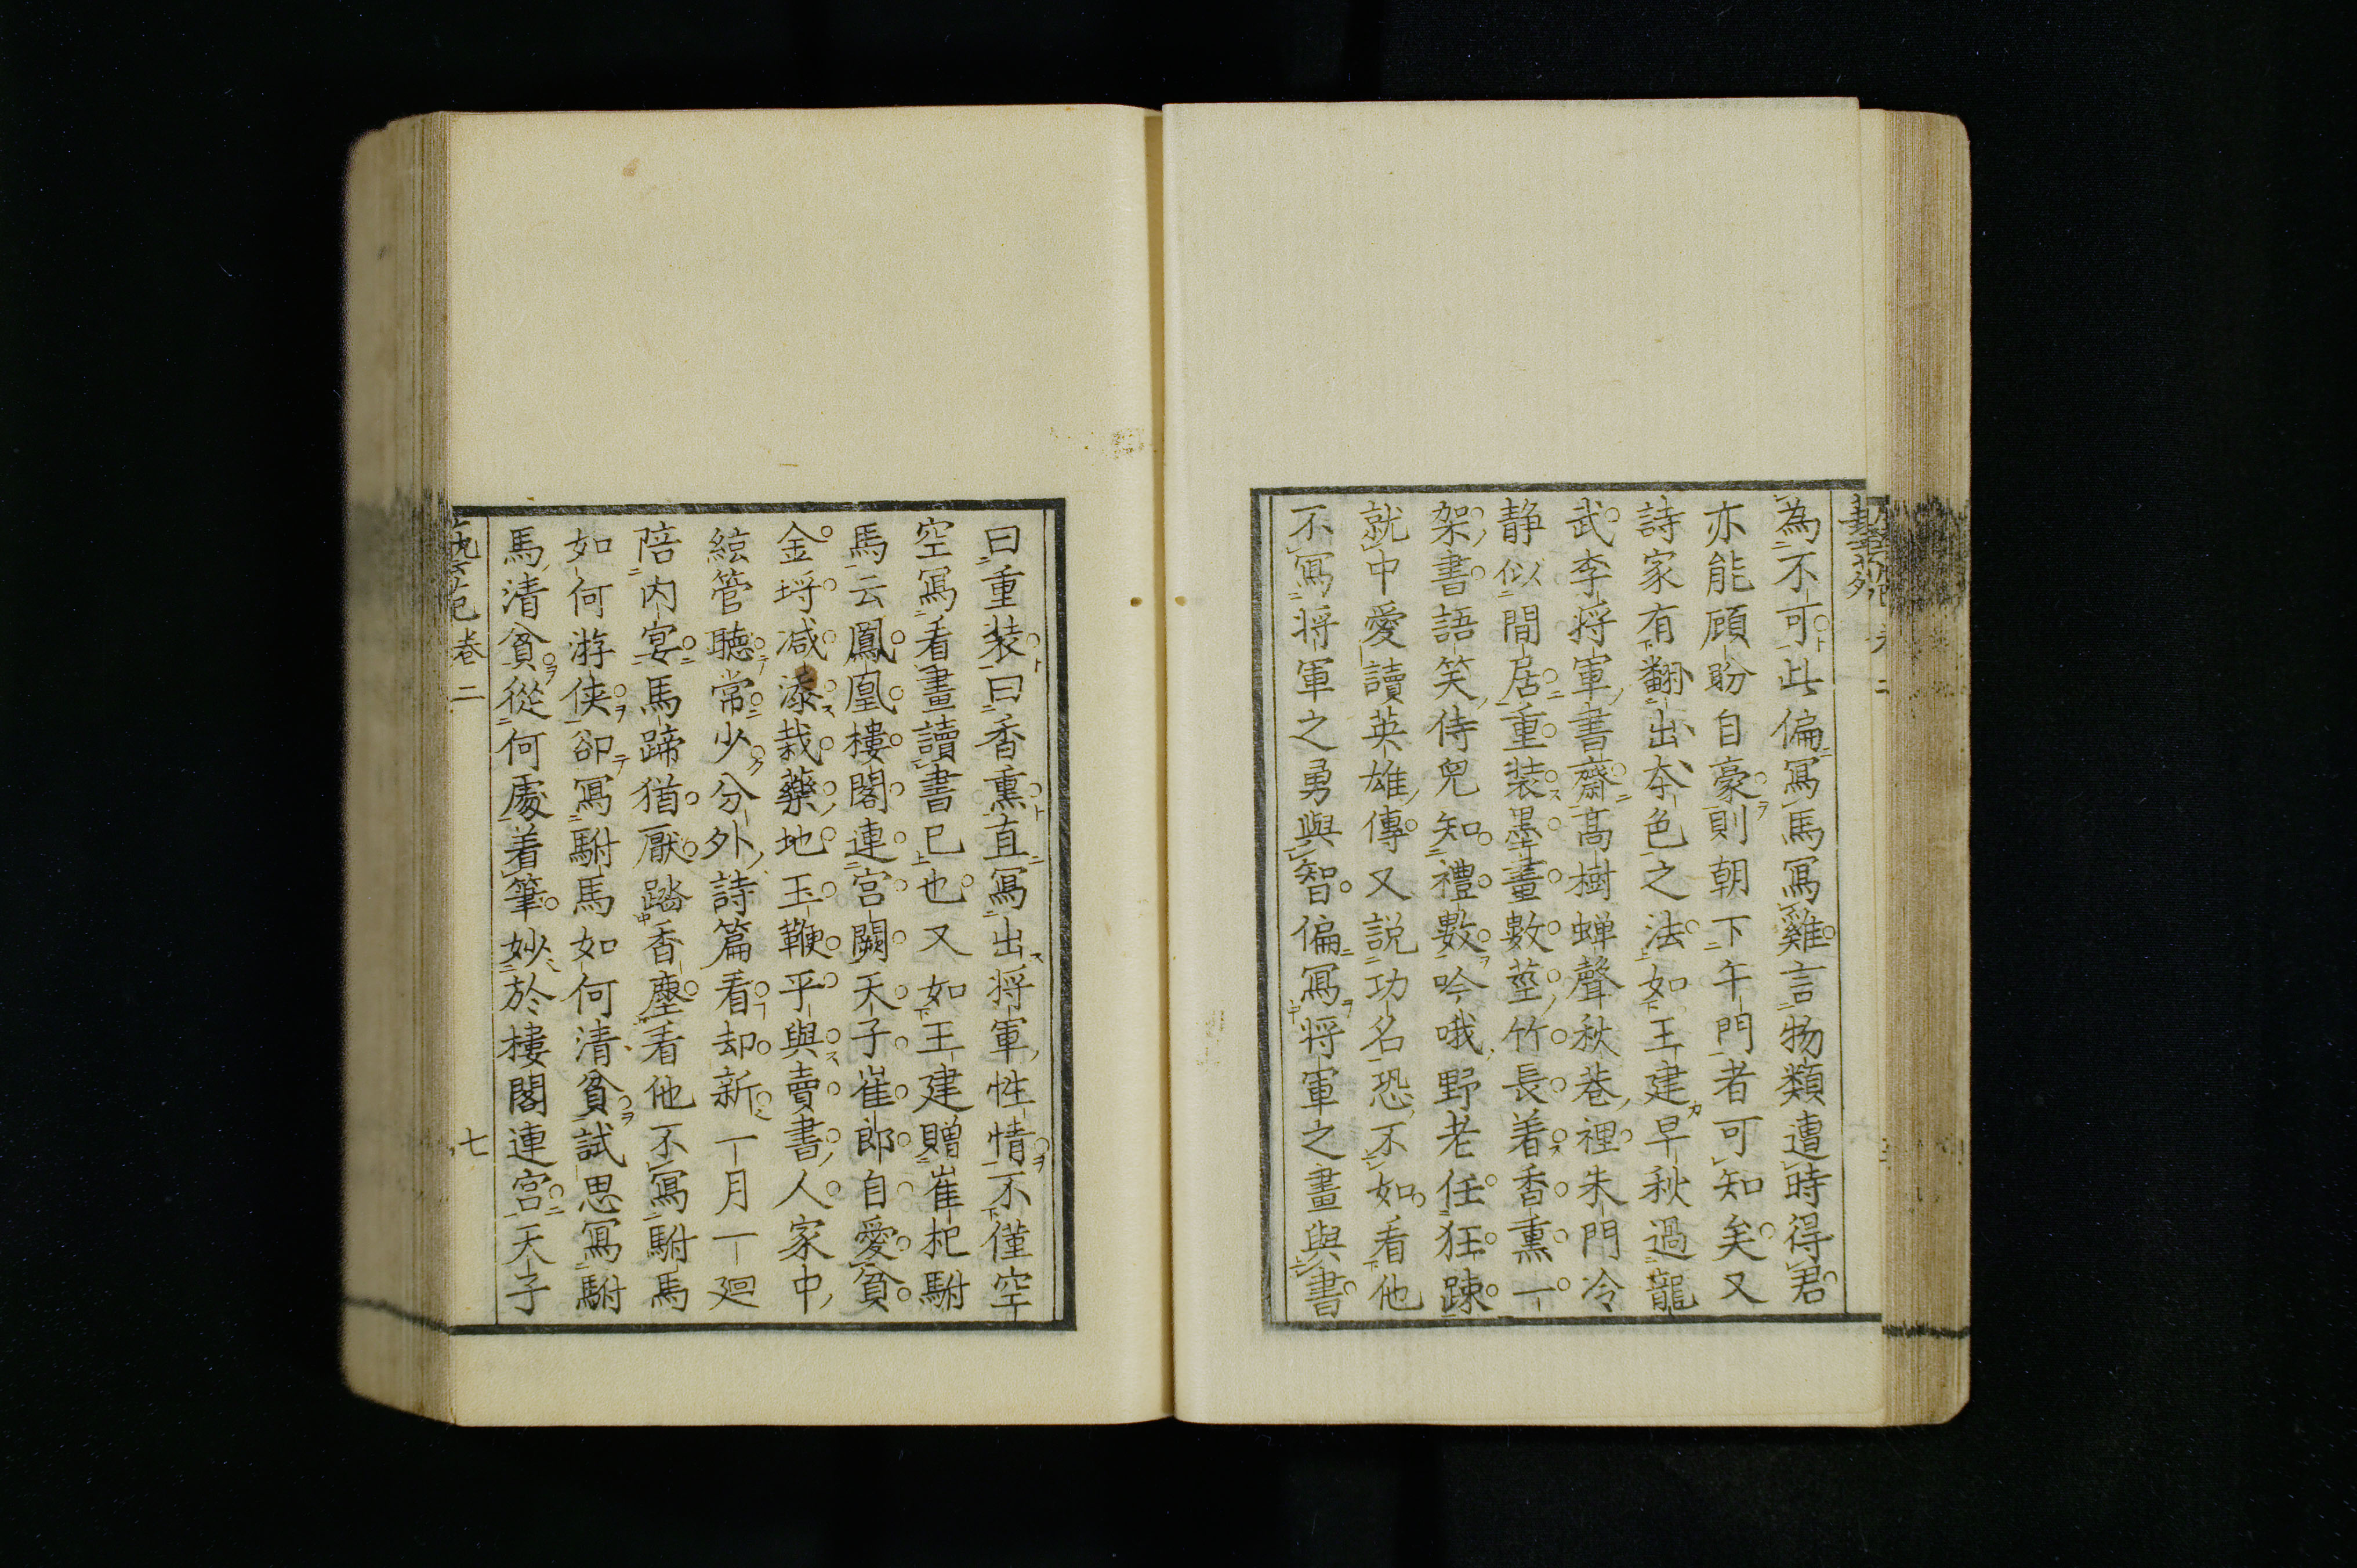 為不可此偏寫馬寫雞言物類遭時得君
亦能顧盼自豪則朝下午門者可知矣又
詩家有翻出本色之法如王建早秋過龍
武李将軍書齋高樹蝉聲秋巷裡朱門冷
静似間居重装墨畫數莖竹長着香熏一
架書語笑侍兒知禮數吟哦野老任狂踈
就中愛讀英雄傳又説功名恐不如看他
不寫将軍之勇與智偏寫将軍之畫與書
曰重装曰香熏直寫出将軍性情不僅空
空寫看畫讀書已也又如王建贈崔杞駙
馬云鳳凰樓閣連宫闕天子崔郎自愛貧
金埒減添栽藥地玉鞭平與賣書人家中
絃管聽常少分外詩篇看却新一月一廻
陪内宴馬蹄猶厭踏香塵看他不寫駙馬
如何游俠卻寫駙馬如何清貧試思寫駙
馬清貧從何處着筆妙於樓閣連宫天子
卷二
七